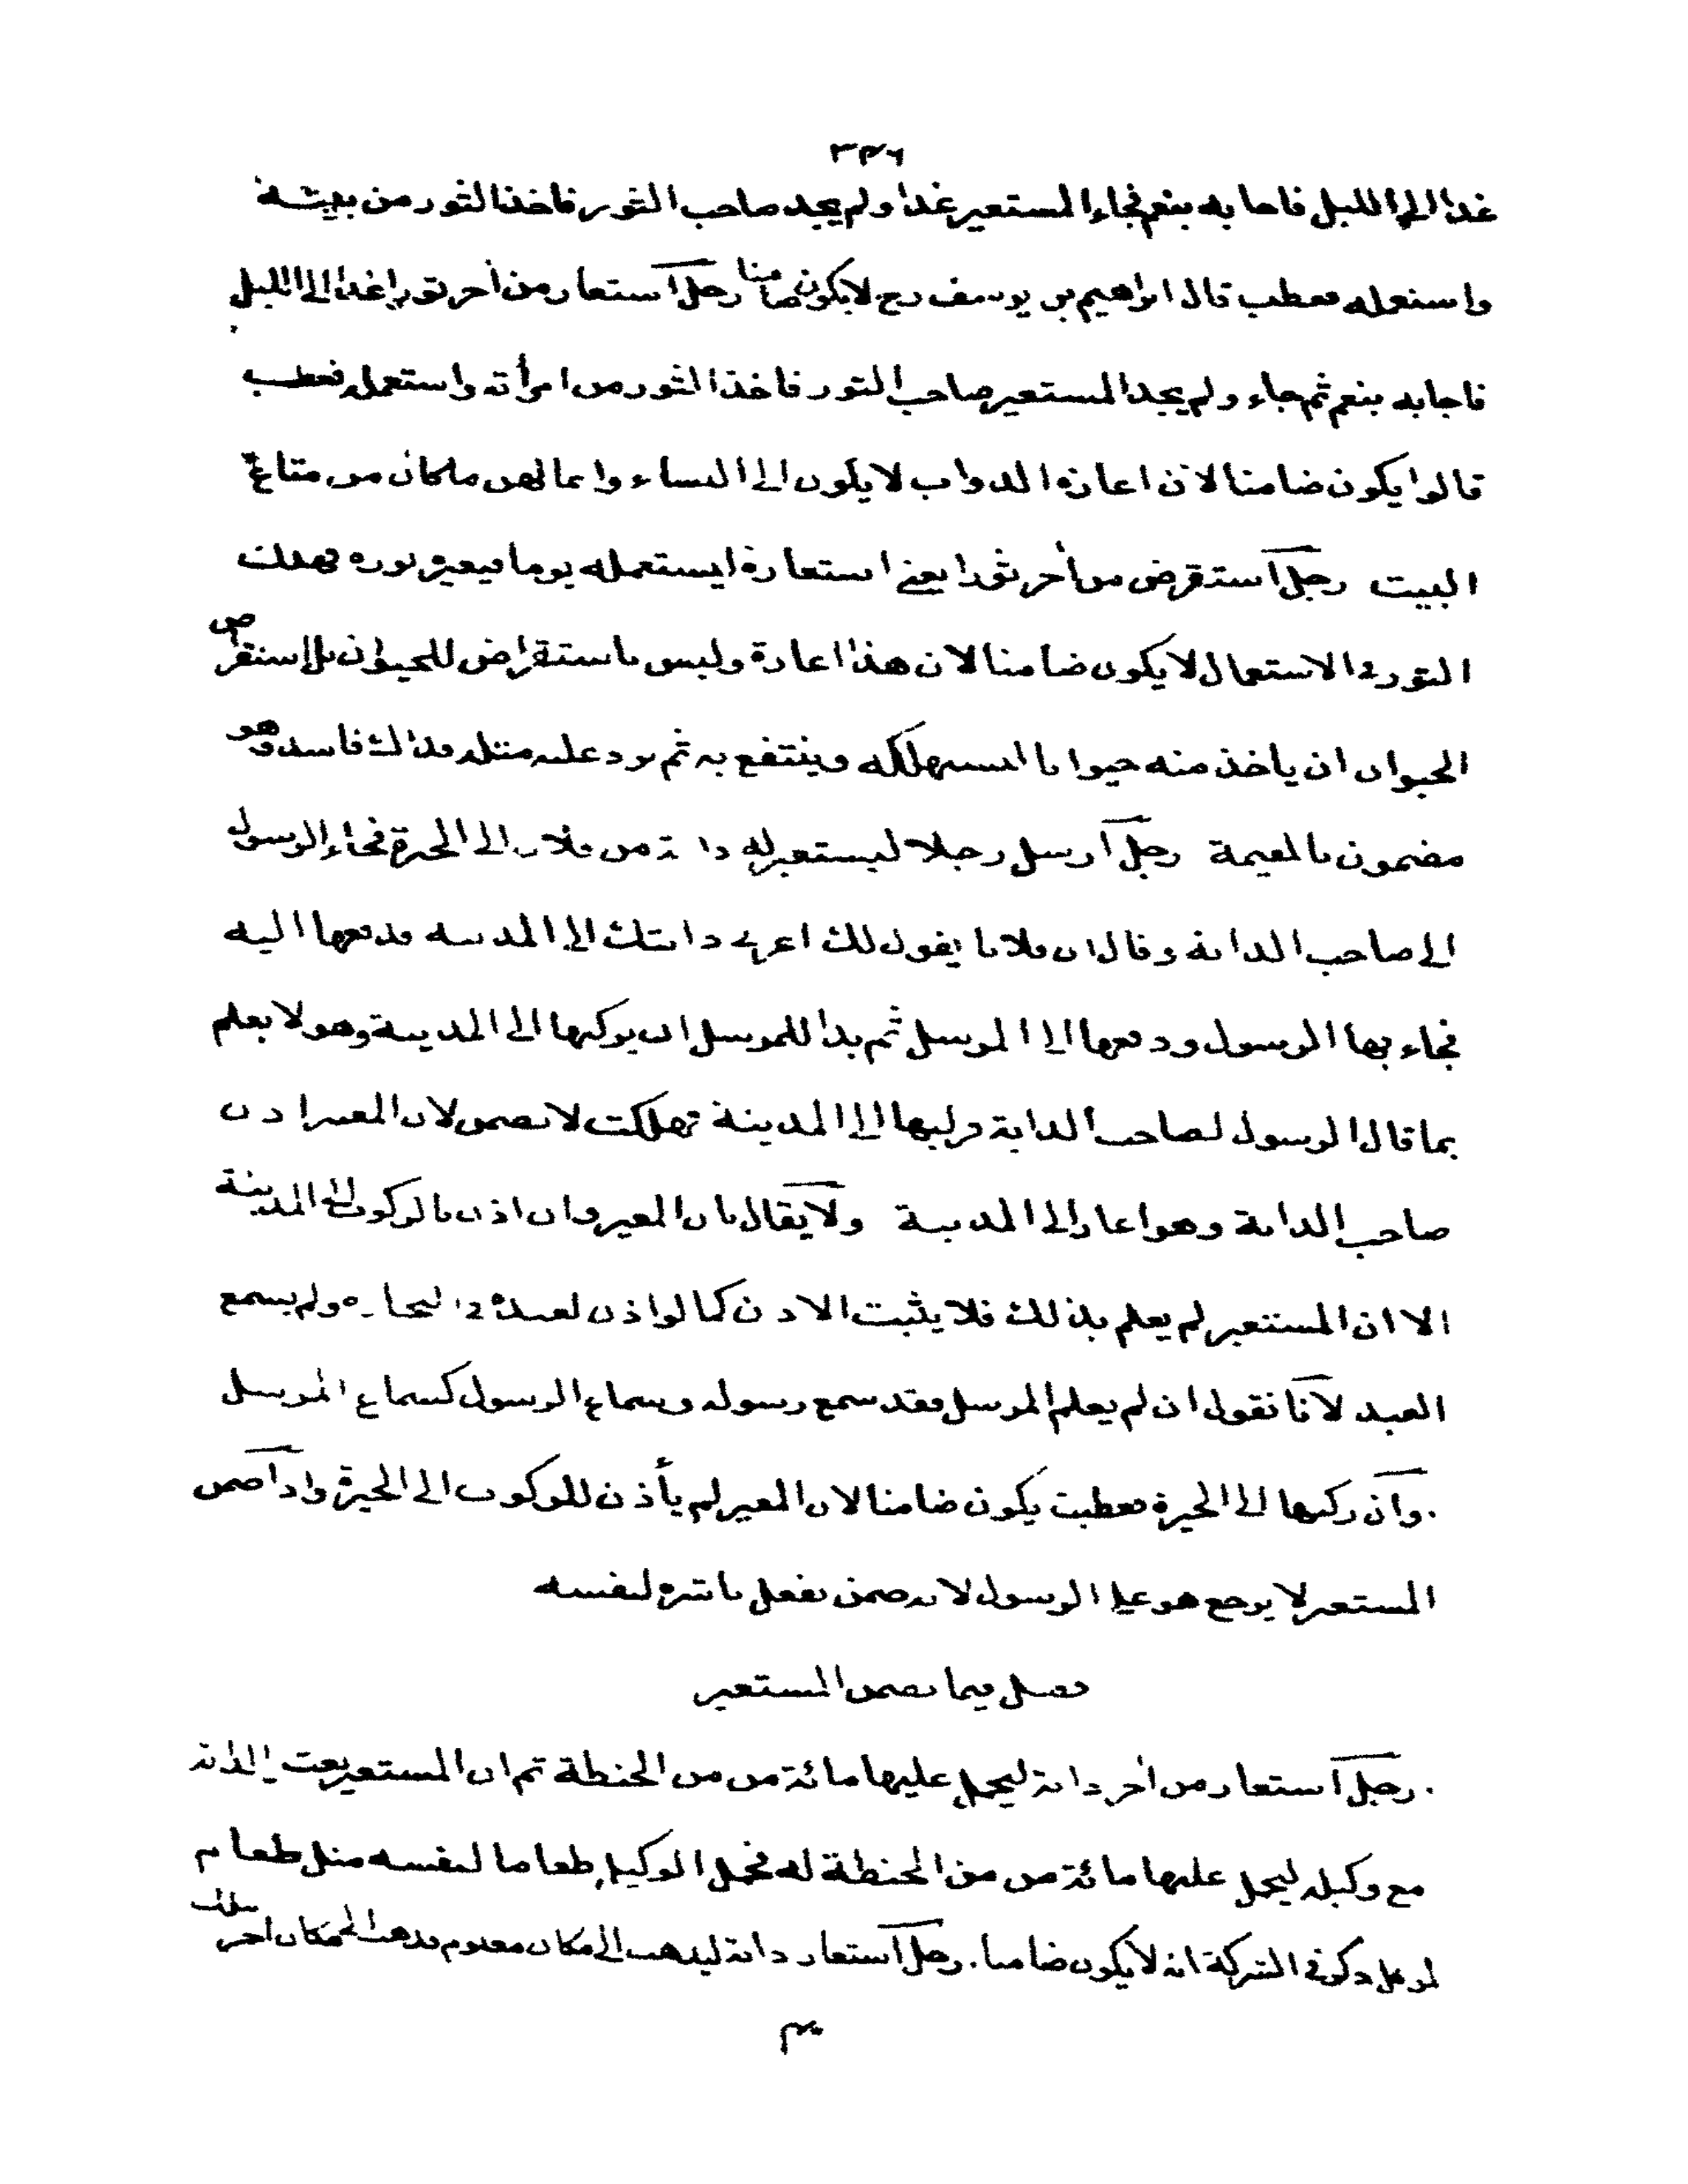 ٣٣٦
غدا الى الليل فاجابه بنعم فجاء المستعير غدا ولم يجد صاحب الثور فاخذ الثور من بيته
واستعمله فعطب قال ابراهيم بن يوسف رح لا يكون ضامنا رجل استعار من اخر ثورا غدا الى الليل
فاجابه بنعم ثم جاء ولم يجد المستعير صاحب الثور فاخذ الثور من امرأته واستعمله فعطب
قالوا يكون ضامنا لان اعارة الدواب لا يكون الى النساء وانما لهن ماكان من متاع
البيت رجل استقرض من اخر ثورا يعني استعارة ليستعمله يوما فيعيره ثوره فهلك
الثور في الاستعمال لا يكون ضامنا لان هذا اعارة وليس باستقراض للحيوان بل استقراض
الحيوان ان ياخذ منه حيوانا ليستهلكه وينتفع به ثم يرد عليه مثله فذلك فاسد وهو
مضمون بالقيمة رجل ارسل رجلا ليستعير له دابة من فلان الى الحيرة فجاء الرسول
الى صاحب الدابة وقال ان فلانا يقول لك اعرني دابتك الى المدينه فدفعها اليه
فجاء بها الرسول ودفعها الى المرسل ثم بدا للمرسل ان يركبها الى المدينة وهو لا يعلم
بما قال الرسول لصاحب الدابة فركبها الى المدينة فهلكت لا يضمن لان المعير اذن
صاحب الدابة وهو اعار الى المدينة ولا يقال بان المعير وان اذن بالركوب الى المدينة
الا ان المستعير لم يعلم بذلك فلا يثبت الاذن كما لو اذن لعبده في التجارة ولم يسمع
العبد لانا نقول ان لم يعلم المرسل فقد سمع رسوله وسماع الرسول كسماع المرسل
وان ركبها الى الحيرة فعطبت يكون ضامنا لان المعير لم يأذن للركوب الى الحيرة واذا ضمن
المستعير لا يرجع هو على الرسول لانه ضمن بفعل باشره لنفسه
فصل فيما يضمن المستعير
رجل استعار من اخر دابة ليحمل عليها مائة من من الحنطة ثم ان المستعير بعث الدابة
مع وكيله ليحمل عليها مائة من من الحنطة له فحمل الوكيل طعاما لنفسه مثل طعام
الموكل ذكر في الشركة انه لا يكون ضامنا. رجل استعار دابة ليذهب الى مكان معلوم فذهب الى مكان اخر